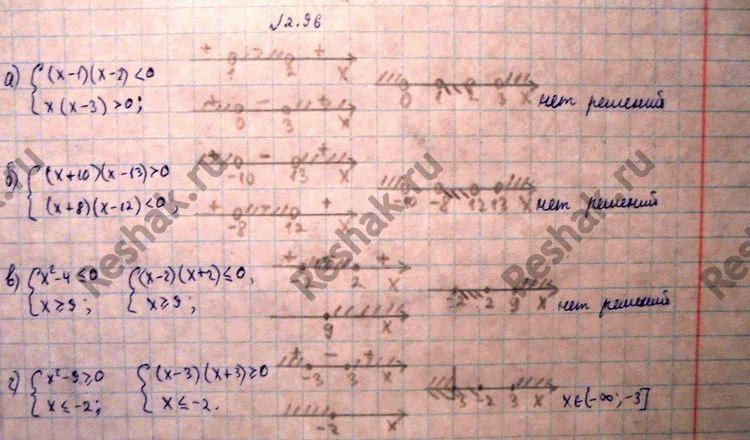 №2.96
а) { (x-1)(x-2)<0
x(x-3)>0;
+ 1 2 + x
+ 0 - 3 + x
0 1 2 3 x нет решений
б) { (x+10)(x-13)>0
(x+8)(x-12)<0;
+ -10 - 13 + x
-8 12 x
-10 -8 12 13 x нет решений
в) { x²-4≤0
x≥9;
{ (x-2)(x+2)≤0,
x≥9;
+ 2 + x
9 x
-2 2 9 x нет решений
г) { x²-9≥0
x≤-2;
{ (x-3)(x+3)≥0
x≤-2.
+ -3 - 3 + x
-2 x
-3 -2 3 x x∈(-∞;-3]
Reshak.ru
Reshak.ru
Reshak.ru
Reshak.ru
Reshak.ru